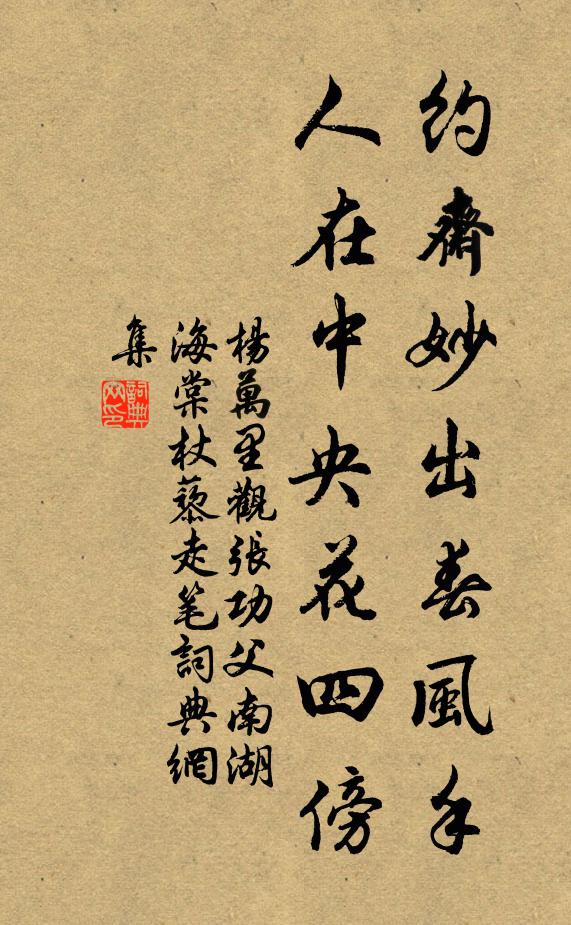 約齋妙出春風手
人在中央花四傍
楊萬里觀張功父南湖
海棠杖藜走笔詞典網
集
詞典網印